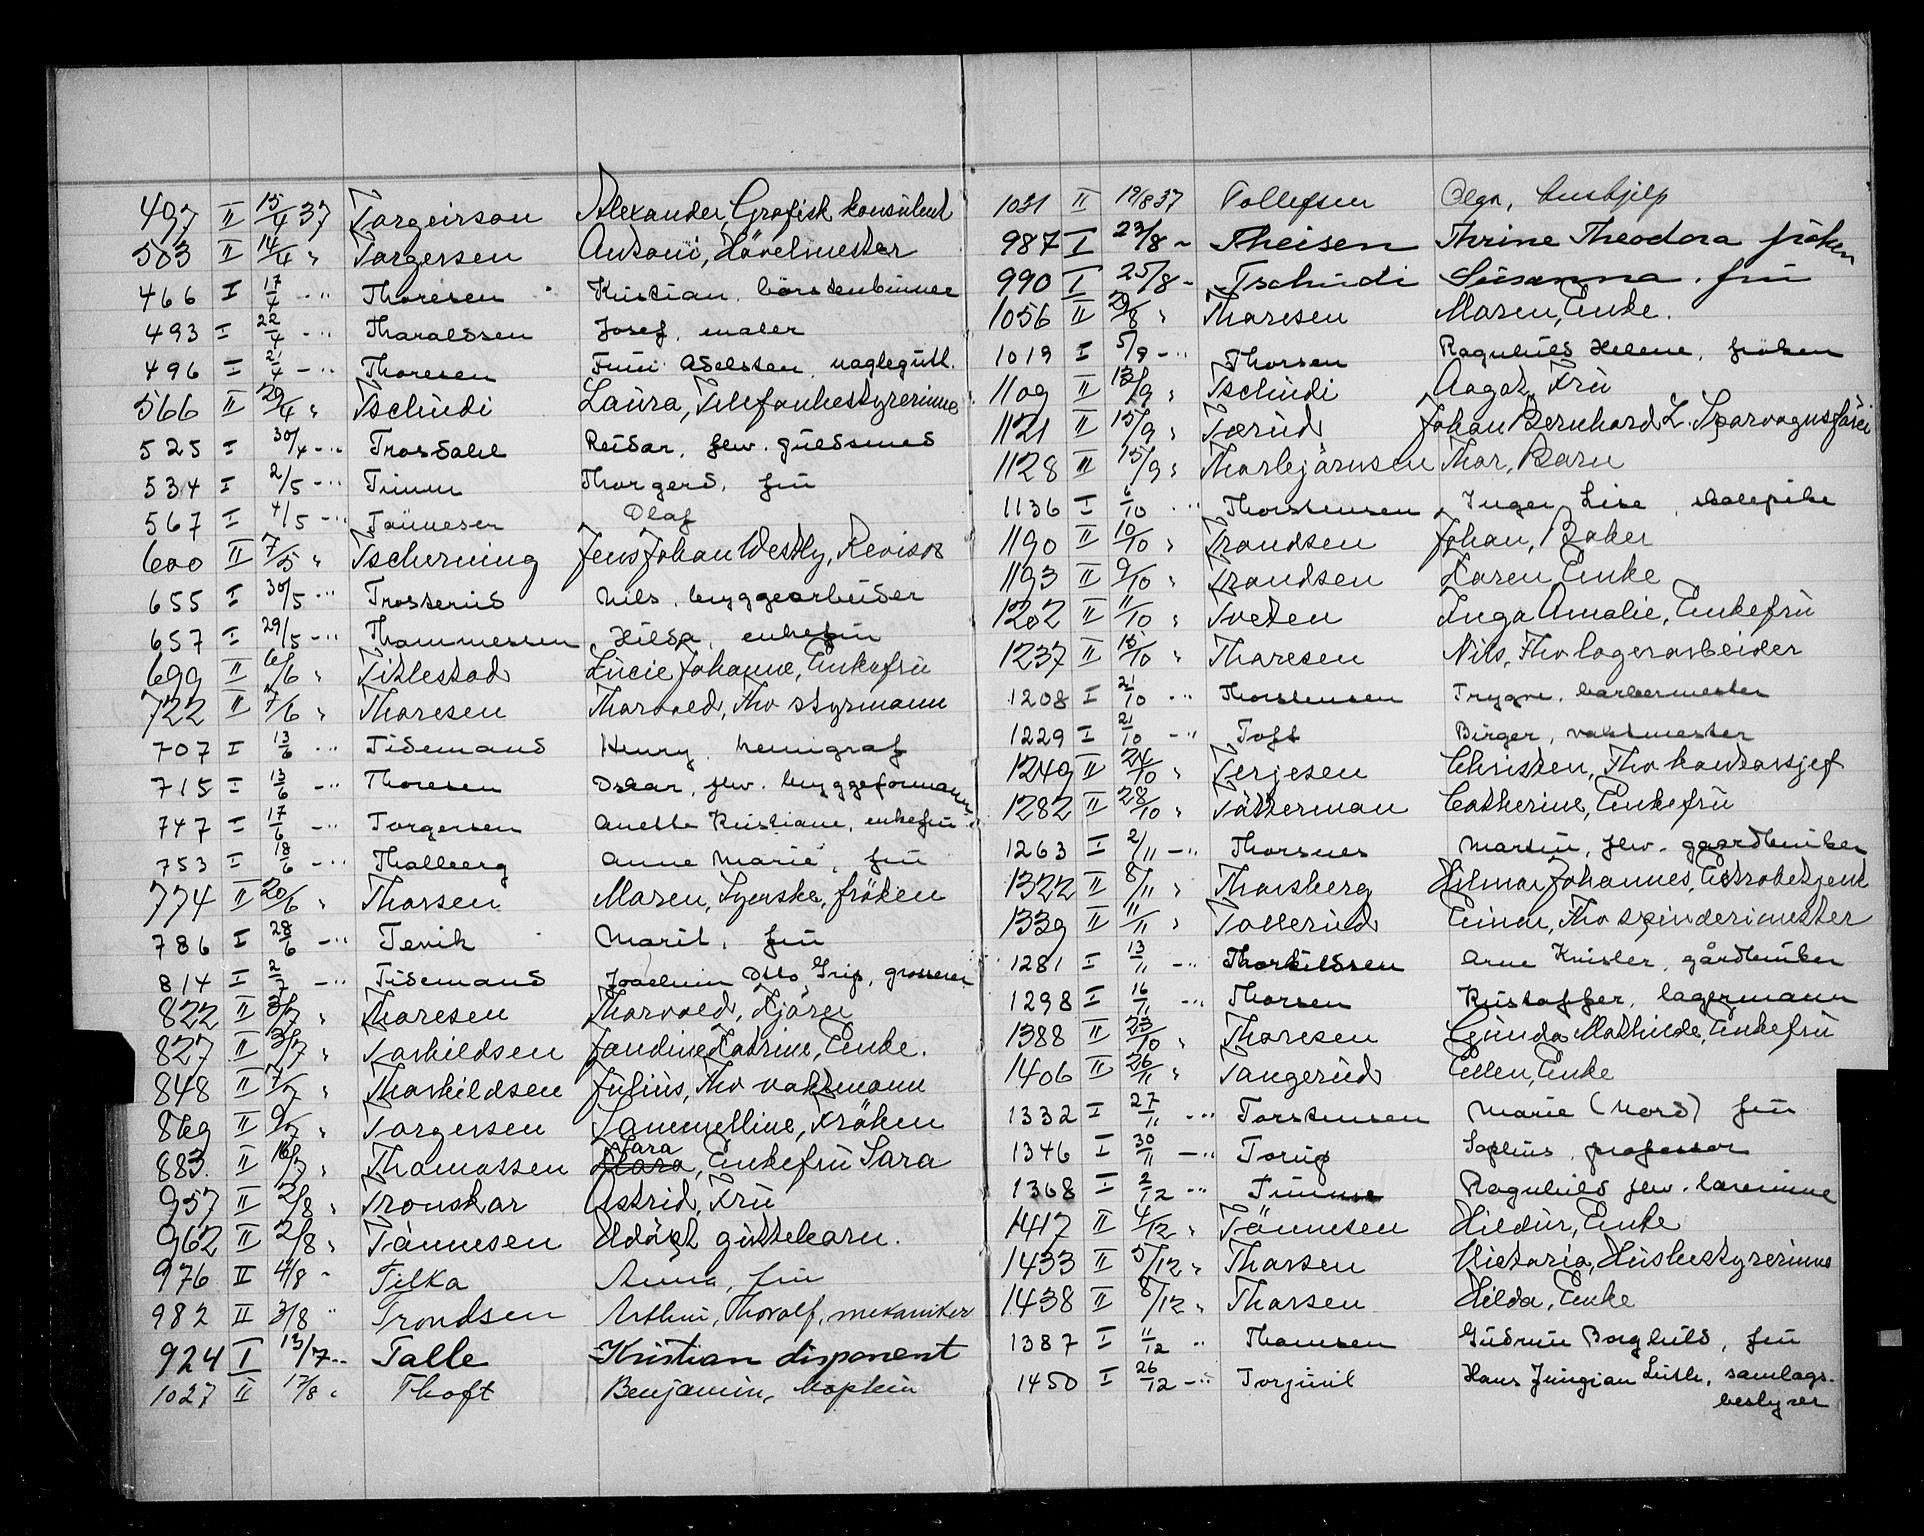 497 II 15/4 37 Torgeirson Alexander, Grafisk konsulent
503 II 14/4 " Torgersen Antoni, Hövelmester
466 I 17/4 -"- Thoresen Kristian, börstenbinner
493 I 22/4 -"- Tharaldsen Josef, maler
496 I 21/4 -"- Thoresen Adelsten, naglegutt.
566 II 29/4 " Tschudi Laura, Telefonbestyrerinne
525 I 30/4 -"- Trosdahl Reidar, fhv. gullsmed
534 I 2/5 -"- Timm Thorgerd, fru
567 I 4/5 -"- Tönnesen Olaf
600 II 7/5 " Tscherning Jens Johan Westly, Revisor
655 I 30/5 -"- Trosterud Nils, bryggearbeider
657 I 29/5 -"- Thommessen Hilda, enkefru
699 II 6/6 " Titlestad Lucie Johanne, Enkefru
722 II 7/6 " Thoresen Thorvald, Fhv styrmann
707 I 13/6 -"- Tidemand Henry, kemigraf
715 I 13/6 -"- Thoresen Oskar, fhv. bryggeformann
747 I 17/6 -"- Torgersen Anette Kristiane, enkefru
753 I 18/6 -"- Thalberg Anne Marie, fru
774 II 20/6 " Thorsen Maren, Syerske, fröken
786 I 28/6 -"- Tevik Marit, fru
814 I 2/7 -"- Tidemand Joachim Otto Grip, grosserer
822 II 3/7 " Thoresen Thorvald, Kjörer
827 II 3/7 " Torkildsen Jandine Katrine, Enke.
848 II 7/7 " Thorkildsen Julius, Fhv vaktmann
869 II 9/7 " Torgersen Samueline, Fröken
883. II 16/7 " Thomassen Sara Klara, Enkefru Sara
957 II 2/8 " Tronskar Astrid, Fru
962 II 2/8 " Tönnesen Udöpt guttebarn.
976 II 4/8 " Tilka Anna, fru
982 II 3/8 " Trondsen Arthur, Thorolf, mekaniker
924 I 13/7 -"- Talle Kristian disponent
1027 II 17/8 " Thoft Benjamin,
1031 II 19/8 37 Tollefsen Olga, hushjelp
987 I 23/8 " Theisen Thrine Theodora fröken
990 I 25/8 - Tschudi Susanna. fru
1056 II 29/8 " Thoresen Maren, Enke.
1019 I 5/9 -"- Thorsen Ragnhild Helene, fröken
1109 II 13/9 " Tschudi Aagot, Fru
1121 II 15/9 " Torud Johan Bernhard L. Sporvognsfører
1128 II 15/9 " Thorbjörnsen Thor, Barn
1136 I 6/10 -"- Thorstensen Inger Lise, skolepike
1190 II 10/10 " Trondsen Johan, Baker
1193 II 9/10 " Trondsen Karen, Enke
1202 II 11/10 " Tveten Inga Amalie, Enkefru
1237 II 15/10 " Thoresen Nils, Fhv lagerarbeider
1208 I 21/10 -"- Thorstensen Trygve, barbermester
1229 I 21/10 -"- Toft Birger, vaktmester
1249 II 24/10 " Terjesen Christen, Fhv kontorsjef
1282 II 28/10 " Tätterman Catherine, Enkefru
1263 I 2/11 -"- Thorsnes Martin, fhv. gaardbruker
1322 II 8/11 " Thorsberg Hilmar Johannes,
1339 II 11/11 " Tollerud Einar, Fhv spinderimester
1281 I 13/11 -"- Thorkildsen Arne Krisler, gårdbruker
1298 I 16/11 -"- Thorsen Kristoffer, lagermann
1388 II 23/10 " Thoresen Gunda Mathilde, Enkefru
1406 II 26/11 " Tangerud Ellen, Enke
1332 I 27/11 -"- Torstensen Marie (Mord) fru
1346 I 30/11 -"- Torup Sophus, professor
1368 I 2/12 -"- Timme Ragnhild fhv. lærerinne
1417 II 4/12 " Tönnesen Hildur, Enke
1433 II 5/12 " Thorsen Victoria, Husbestyrerinne
1438 II 8/12 " Thorsen Hilda, Enke
1387 I 11/12 " Thomsen Gudrun Borghild, fru
1450 I 26/12 -"- Torjuvil Hans Jungian Luth, samlags-
bestyrer